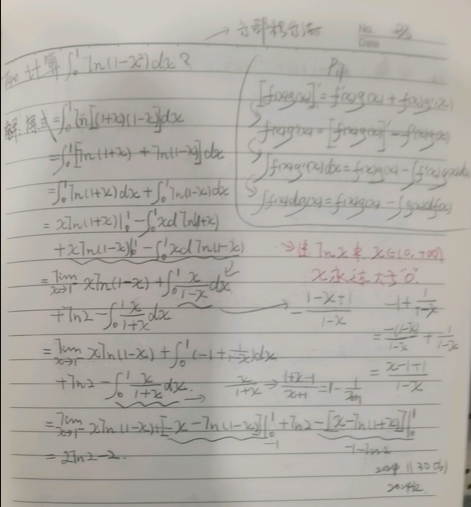 →分部积分法
No.
Date
计算∫₀¹ ln(1-x²)dx?
解:原式=∫₀¹ ln[(1+x)(1-x)]dx
=∫₀¹[ln(1+x)+ln(1-x)]dx
=∫₀¹ln(1+x)dx+∫₀¹ln(1-x)dx
=xln(1+x)|₀¹-∫₀¹xd ln(1+x)
+xln(1-x)|₀¹-∫₀¹xd ln(1-x)
=lim x→1⁻ xln(1-x)+∫₀¹ x/(1-x) dx
+ln2-∫₀¹ x/(1+x) dx
=lim x→1⁻ xln(1-x)+∫₀¹(-1+1/(1-x))dx
+ln2-∫₀¹ x/(1+x) dx.
=lim x→1⁻ xln(1-x)+[-x-ln(1-x)]|₀¹+ln2-[x-ln(1+x)]|₀¹
-1
1-ln2
=2ln2-2.
[f(x)g(x)]'=f'(x)g(x)+f(x)g'(x)
f(x)g'(x)=[f(x)g(x)]'-f'(x)g(x)
∫f(x)g'(x)dx=f(x)g(x)-∫f'(x)g(x)dx
∫f(x)dg(x)=f(x)g(x)-∫g(x)df(x)
lnx x∈(0,+∞)
x永远大于"0"
-(1-x+1)/(1-x)
-1+1/(1-x)
=-(1-x)/(1-x)+1/(1-x)
=(x-1+1)/(1-x)
x/(1+x)→(1+x-1)/(x+1)=1-1/(x+1)